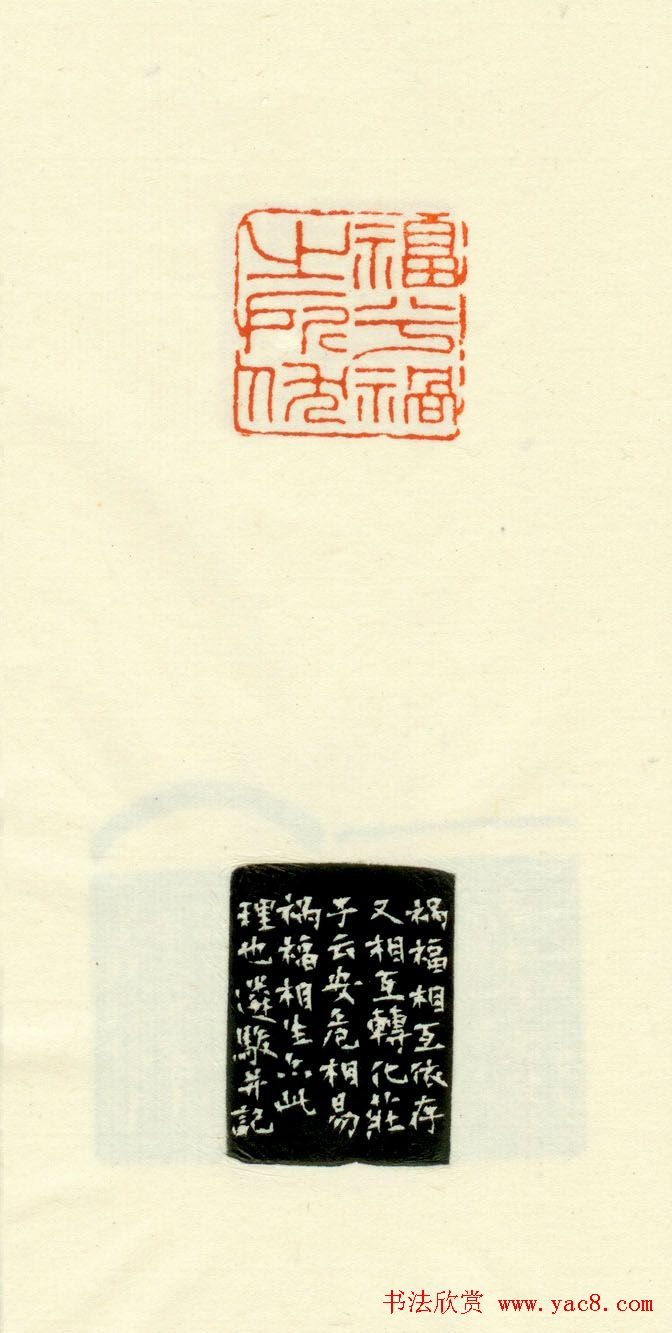 福兮禍
之所伏
禍福相互依存
又相互轉化莊
子云安危相易
禍福相生亦此
理也駿并記
书法欣赏 www.yac8.com